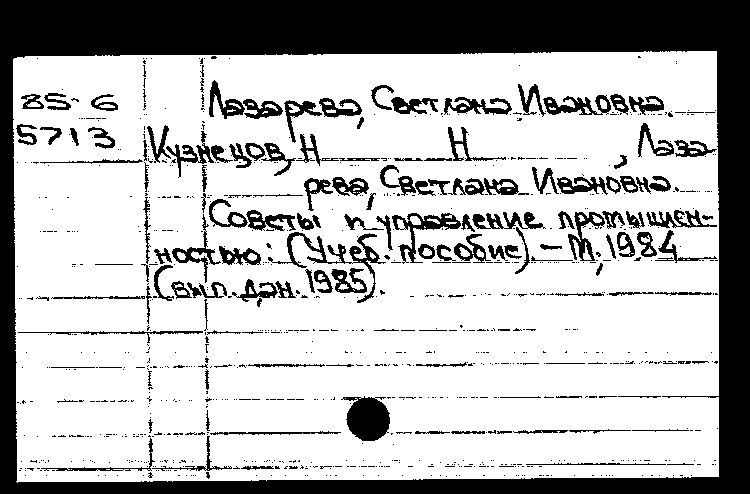 85-6 Лазарева, Светлана Ивановна.
5713 Кузнецов, Н Н , Лаза
рева, Светлана Ивановна.
Советы и управление промышлен-
ностью: (Учеб. пособие). – М., 1984
(вып. дан. 1985).